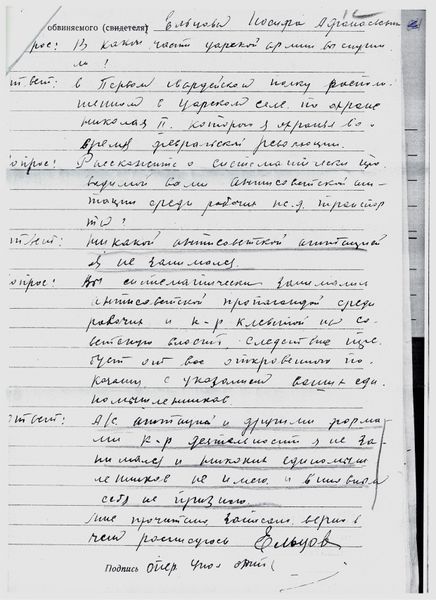 обвиняемого (свидетеля) Ельцова Иосифа Афанасьевич
рос: В какой части царской армии вы служи
ли?
твет: в Первом гвардейском полку распол
женном в царском селе, по охране
николая II. которого я охранял во
время февральской революции.
опрос: Расскажите о систематически про
водимой вами антисоветской аги
тации среди рабочих ж.д. транспор
та?
твет: никакой антисоветской агитацией
я не занимался.
опрос: Вы систематически занимались
антисоветской пропагандой среди
рабочих и к-р клеветой на со
ветскую власть, следствие тре
бует от вас откровенного по
казания с указанием ваших еди
номышленников
твет: А/с агитацией и другими форма
ми к-р деятельности я не за
нимался и никаких единомыш
ленников не имею и виновным
себя не признаю.
мне прочитано записано верно в
чем расписуюсь Ельцов
Подпись опер. упол